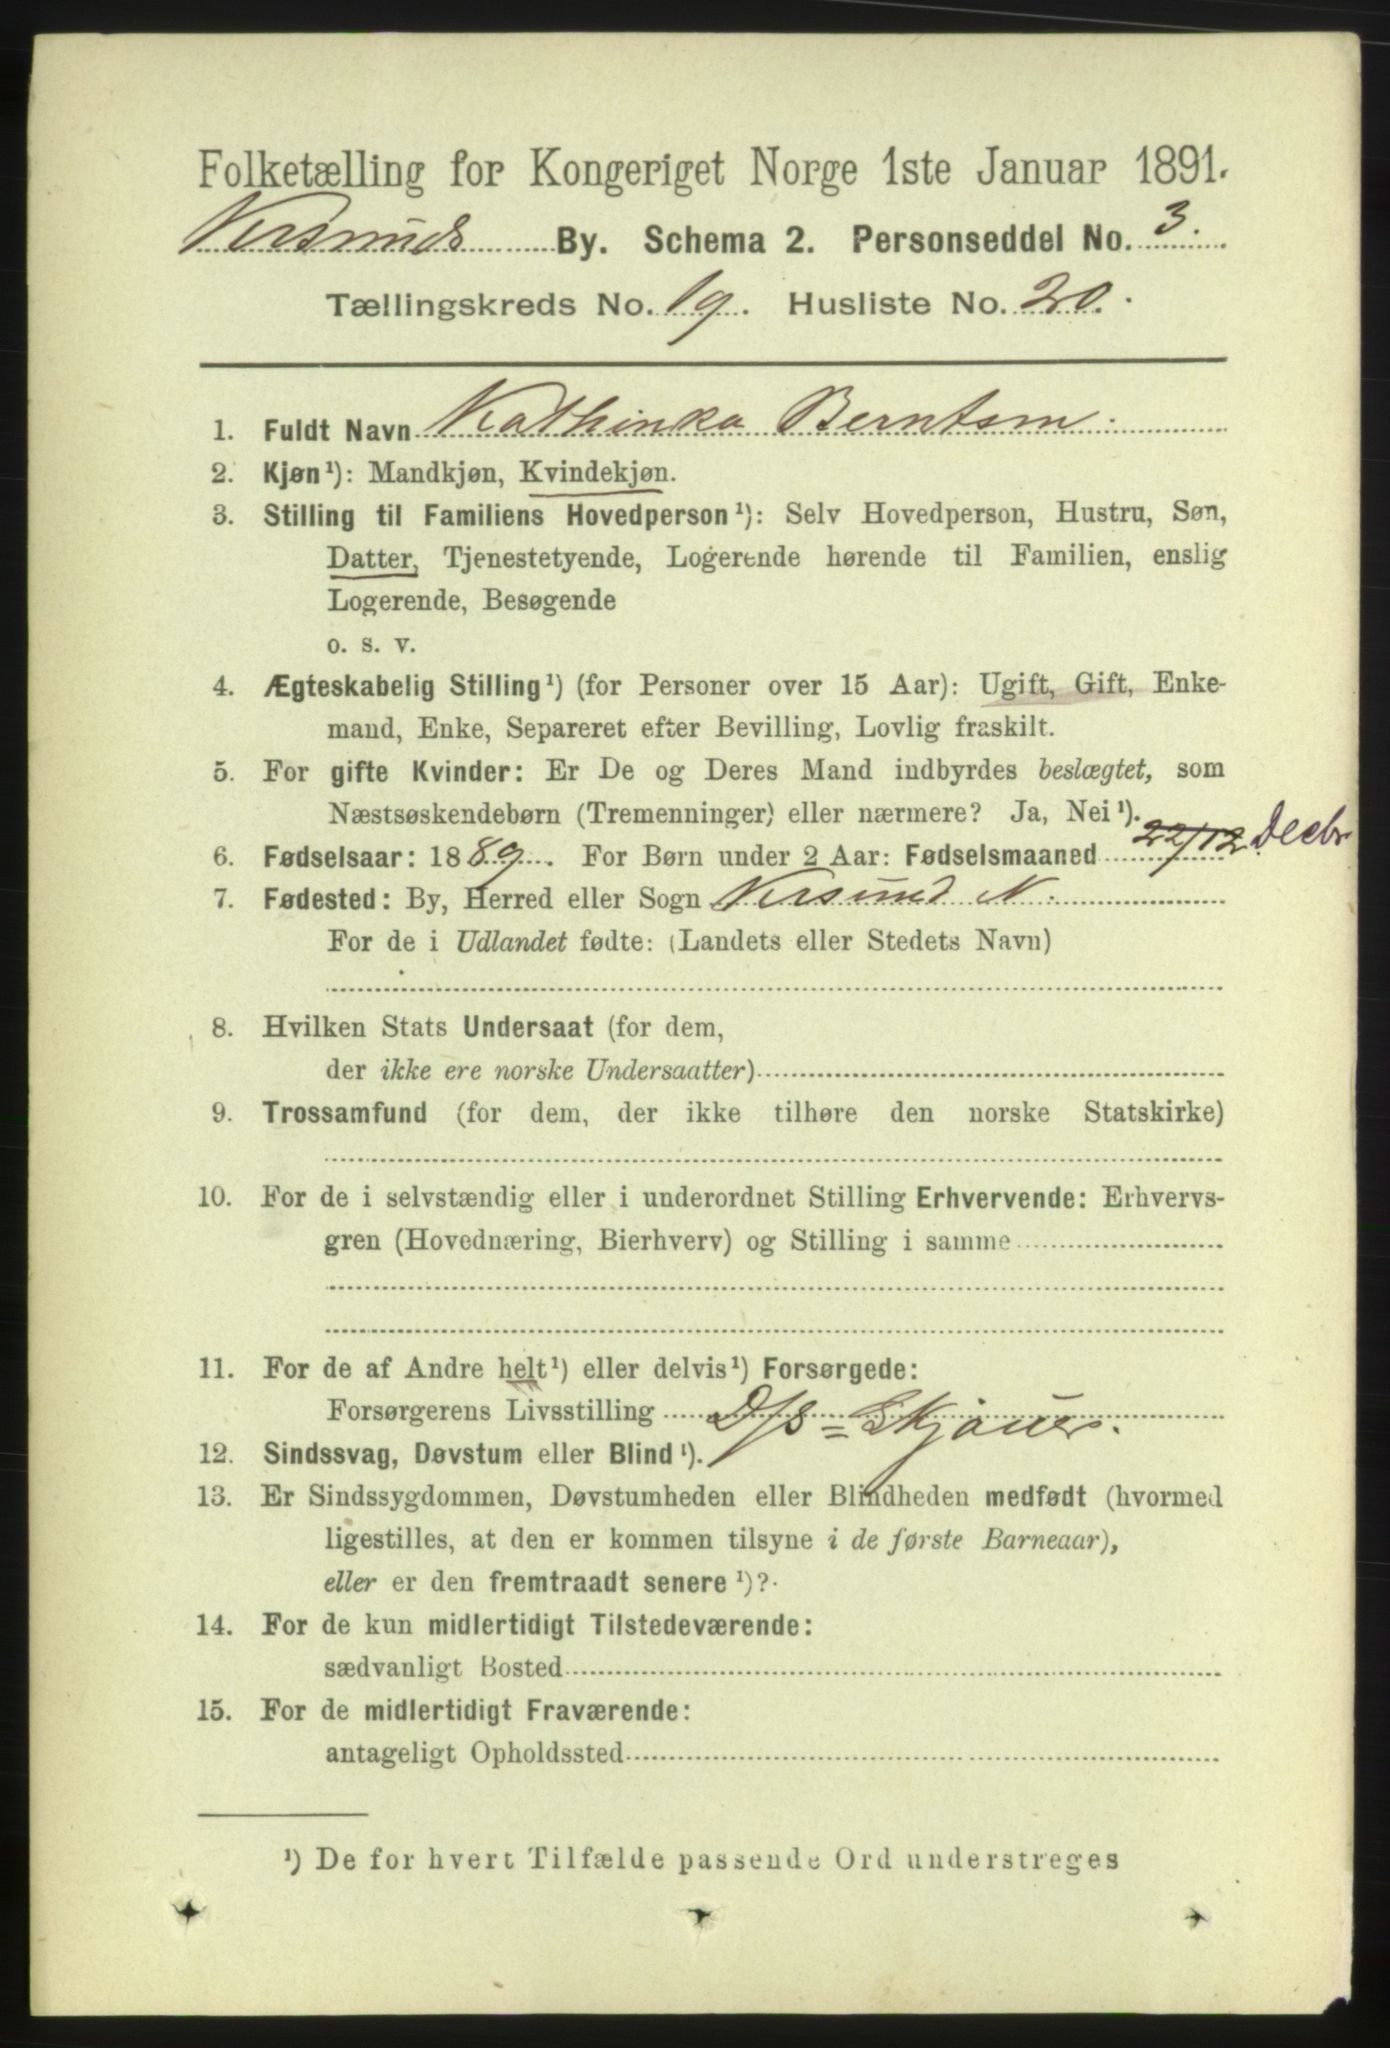 Folketælling for Kongeriget Norge 1ste Januar 1891.
Krsunds By. Schema 2. Personseddel No. 3.
Tællingskreds No. 19. Husliste No. 20.
1. Fuldt Navn Kathinka Berntsen.
2. Kjøn¹): Mandkjøn, Kvindekjøn.
3. Stilling til Familiens Hovedperson¹): Selv Hovedperson, Hustru, Søn,
Datter, Tjenestetyende, Logerende hørende til Familien, enslig
Logerende, Besøgende
o. s. v.
4. Ægteskabelig Stilling¹) (for Personer over 15 Aar): Ugift, Gift, Enke-
mand, Enke, Separeret efter Bevilling, Lovlig fraskilt.
5. For gifte Kvinder: Er De og Deres Mand indbyrdes beslægtet, som
Næstsøskendebørn (Tremenninger) eller nærmere? Ja, Nei¹).
6. Fødselsaar: 1889. For Børn under 2 Aar: Fødselsmaaned 22/12 Decbr
7. Fødested: By, Herred eller Sogn Krsund N.
For de i Udlandet fødte: (Landets eller Stedets Navn)
8. Hvilken Stats Undersaat (for dem,
der ikke ere norske Undersaatter)
9. Trossamfund (for dem, der ikke tilhøre den norske Statskirke)
10. For de i selvstændig eller i underordnet Stilling Erhvervende: Erhvervs-
gren (Hovednæring, Bierhverv) og Stilling i samme
11. For de af Andre helt¹) eller delvis¹) Forsørgede:
Forsørgerens Livsstilling D/S=Skjouer.
12. Sindssvag, Døvstum eller Blind¹).
13. Er Sindssygdommen, Døvstumheden eller Blindheden medfødt (hvormed
ligestilles, at den er kommen tilsyne i de første Barneaar),
eller er den fremtraadt senere¹)?
14. For de kun midlertidigt Tilstedeværende:
sædvanligt Bosted
15. For de midlertidigt Fraværende:
antageligt Opholdssted
¹) De for hvert Tilfælde passende Ord understreges